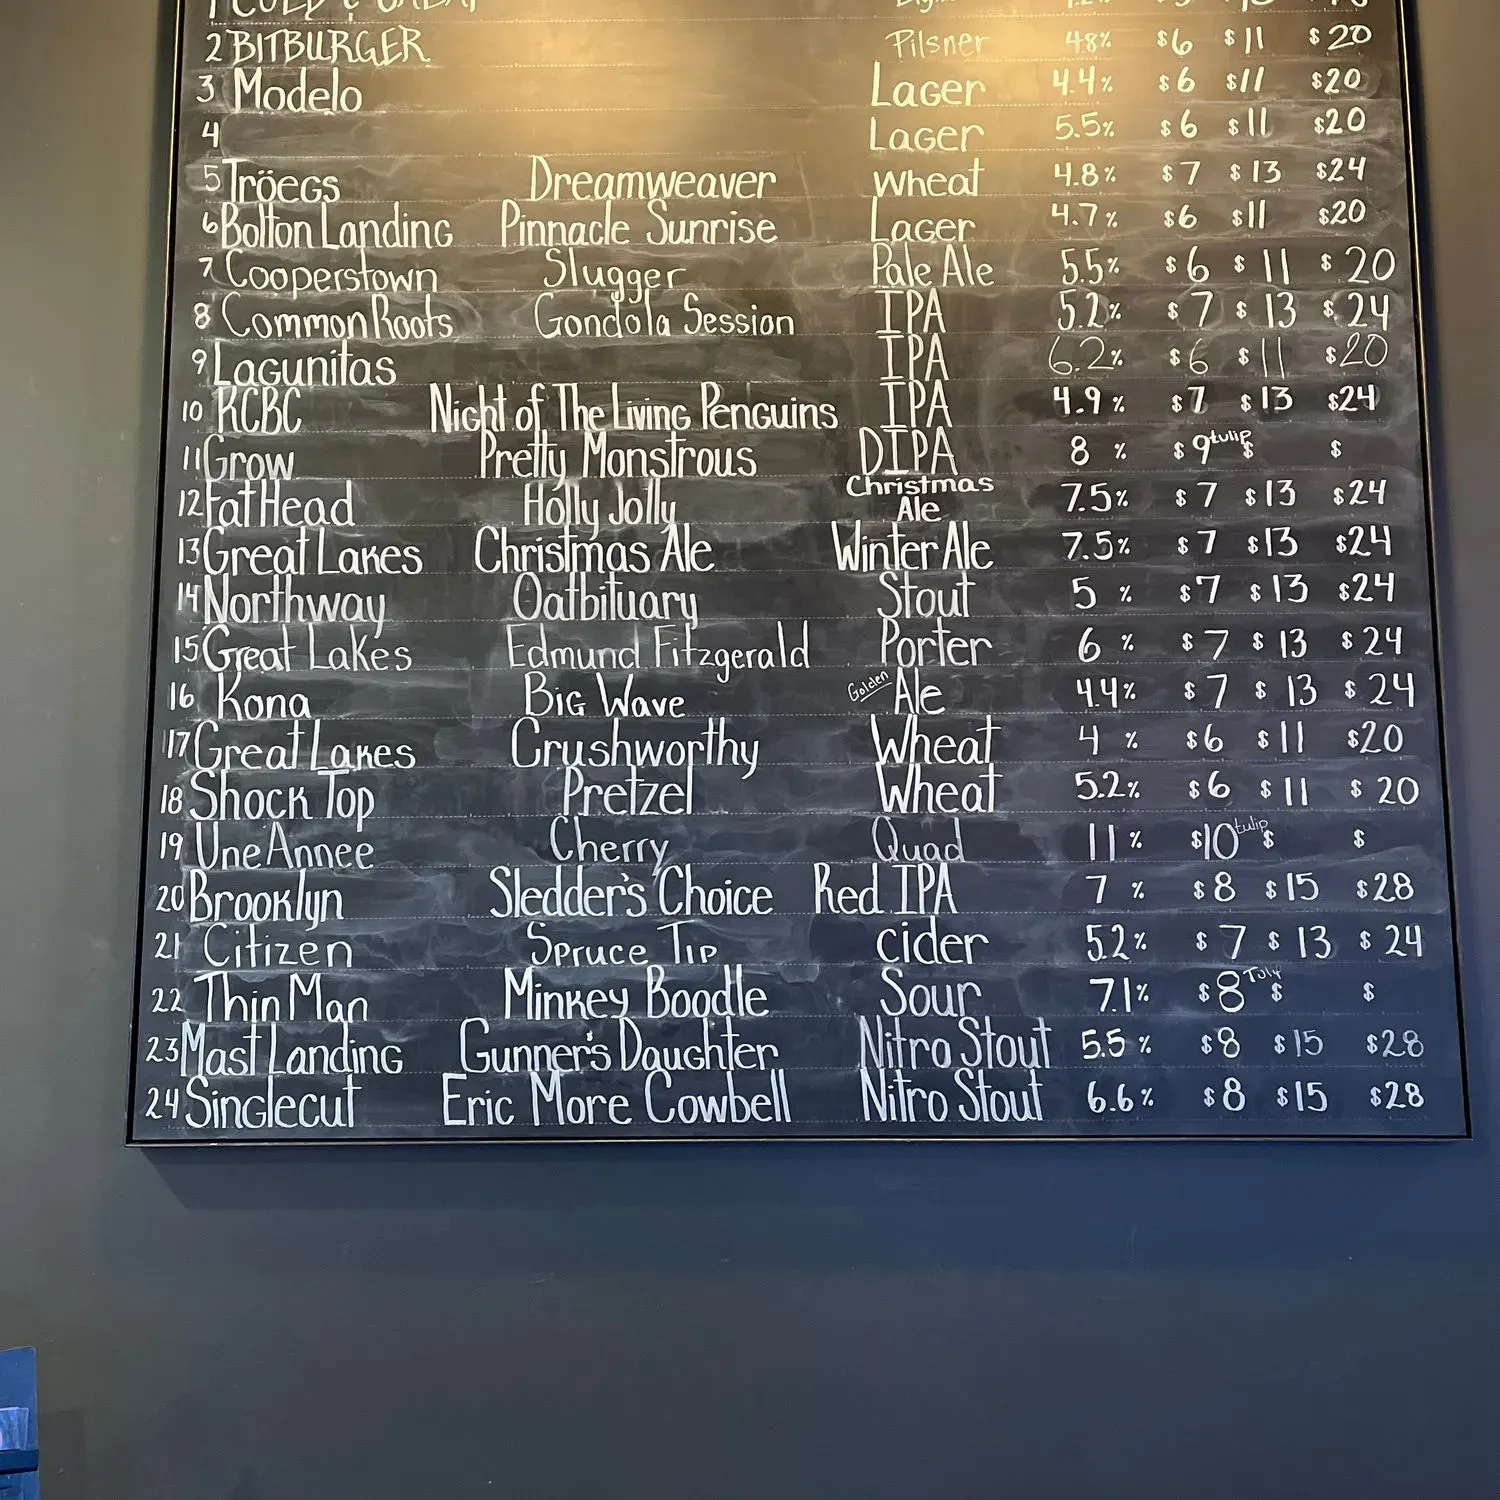 1 COLD & GREAT
2 BITBURGER Pilsner 4.8% $6 $11 $20
3 Modelo Lager 4.4% $6 $11 $20
4 Lager 5.5% $6 $11 $20
5 Tröegs Dreamweaver Wheat 4.8% $7 $13 $24
6 Bolton Landing Pinnacle Sunrise Lager 4.7% $6 $11 $20
7 Cooperstown Slugger Pale Ale 5.5% $6 $11 $20
8 Common Roots Gondola Session IPA 5.2% $7 $13 $24
9 Lagunitas IPA 6.2% $6 $11 $20
10 KCBC Night of The Living Penguins IPA 4.9% $7 $13 $24
11 Grow Pretty Monstrous DIPA 8% $9 tulip $ $
12 Fat Head Holly Jolly Christmas Ale 7.5% $7 $13 $24
13 Great Lakes Christmas Ale Winter Ale 7.5% $7 $13 $24
14 Northway Oatbituary Stout 5% $7 $13 $24
15 Great Lakes Edmund Fitzgerald Porter 6% $7 $13 $24
16 Kona Big Wave Golden Ale 4.4% $7 $13 $24
17 Great Lakes Crushworthy Wheat 4% $6 $11 $20
18 Shock Top Pretzel Wheat 5.2% $6 $11 $20
19 Une Annee Cherry Quad 11% $10 tulip $ $
20 Brooklyn Sledder's Choice Red IPA 7% $8 $15 $28
21 Citizen Spruce Tip cider 5.2% $7 $13 $24
22 Thin Man Minkey Boodle Sour 7.1% $8 $ $
23 Mast Landing Gunner's Daughter Nitro Stout 5.5% $8 $15 $28
24 Singlecut Eric More Cowbell Nitro Stout 6.6% $8 $15 $28